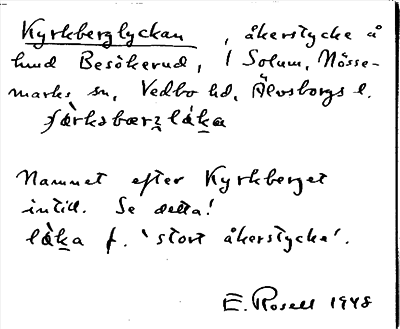 Kyrkberglyckan, åkerstycke å
hmd Besökerud, I Solum, Nösse-
marks sn, Vedbo hd, Älvsborgs l.
Namnet efter Kyrkberget
intill. Se detta!
låka f. 'stort åkerstycke'.
E. Rosell 1948